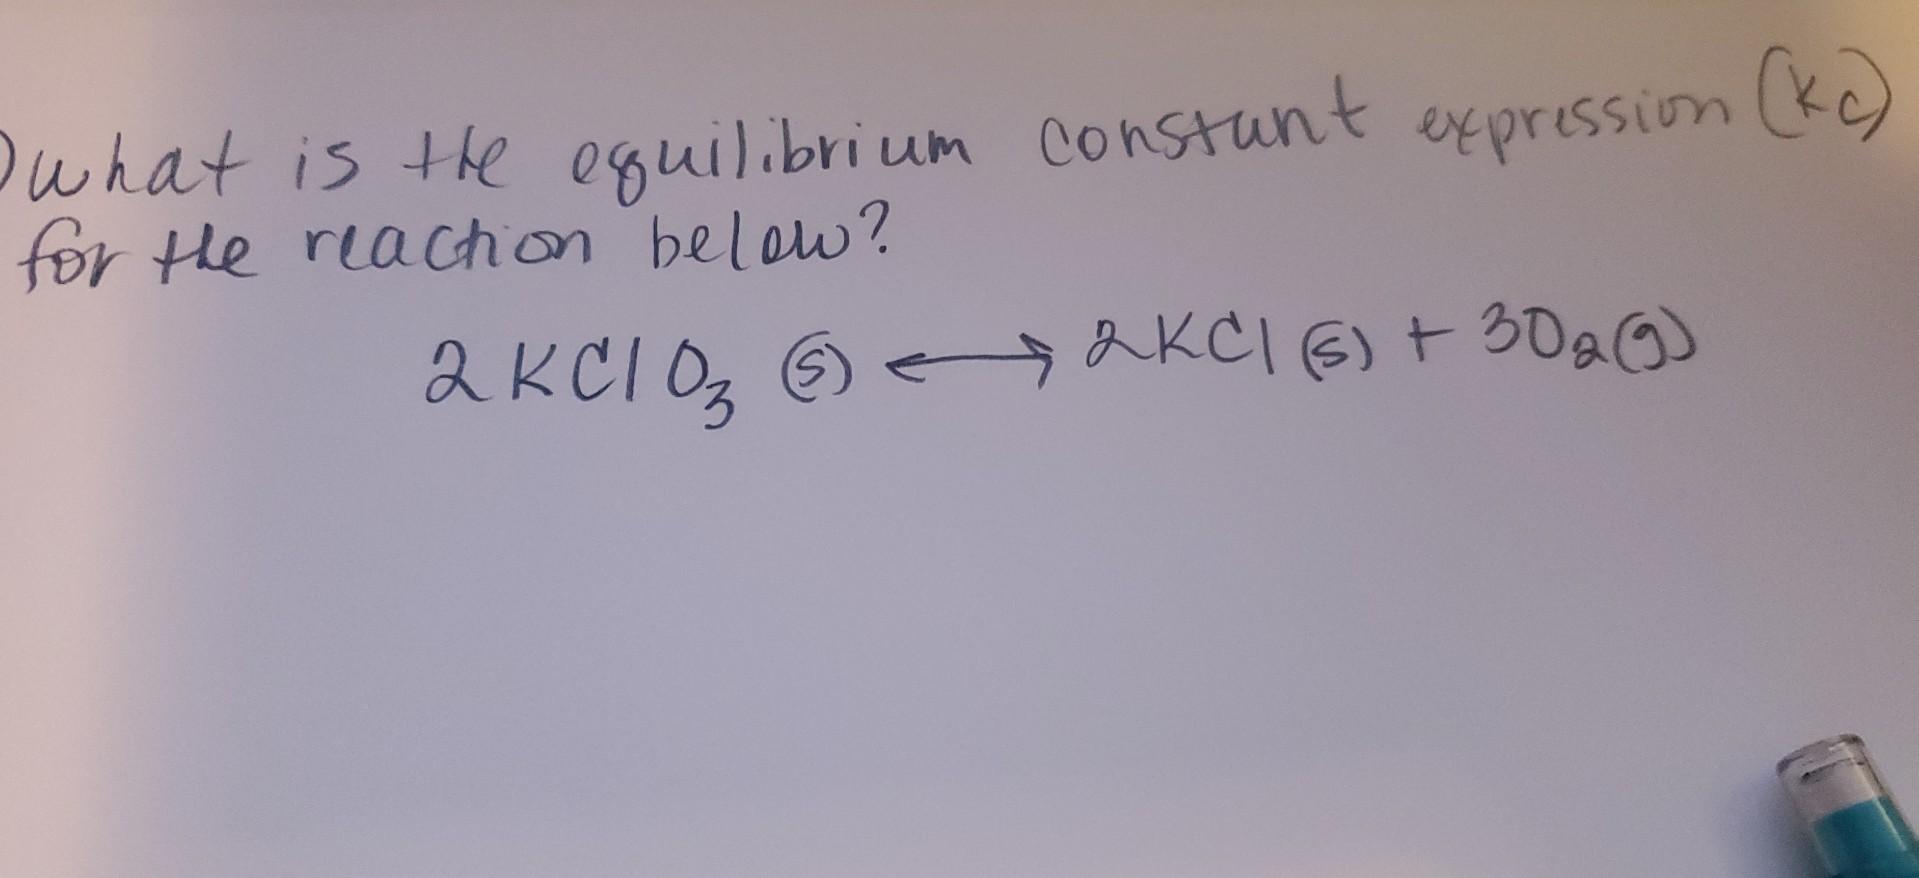 ) what is the equilibrium constant expression (Kc)
for the reaction below?
2 KClO3 (s) ⟷ 2KCl (s) + 3O2(g)